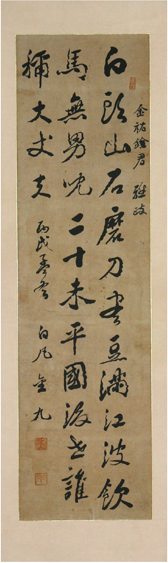 金祐銓君 雅政
白頭山石磨刀盡豆滿江波飮
馬無男兒二十未平國後世誰
稱大丈夫 丙戌 白凡 金九